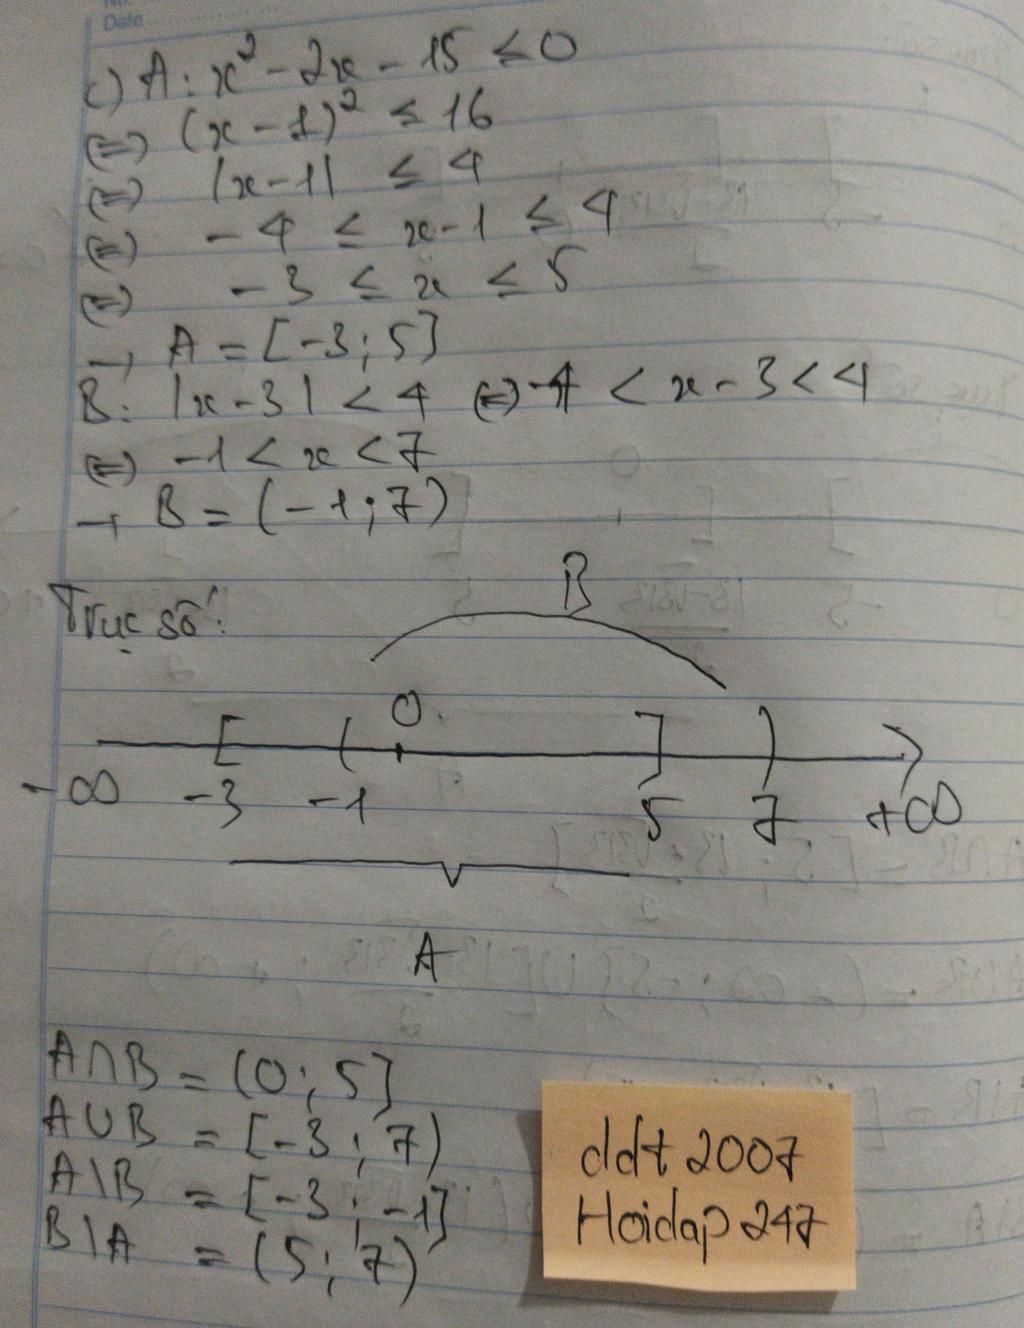 No.
Date
c) A: x² - 2x - 15 ≤ 0
(=) (x - 1)² ≤ 16
(=) |x-1| ≤ 4
(=) -4 ≤ x-1 ≤ 4
(=) -3 ≤ x ≤ 5
→ A = [-3; 5]
B: |x-3| < 4 (=) -4 < x - 3 < 4
(=) -1 < x < 7
→ B = (-1; 7)
Trục số:
B
0
-∞ -3 -1 5 7 +∞
A
A∩B = (0; 5]
A∪B = [-3; 7)
A\B = [-3; -1]
B\A = (5; 7)
ddt 2007
Hoidap 247